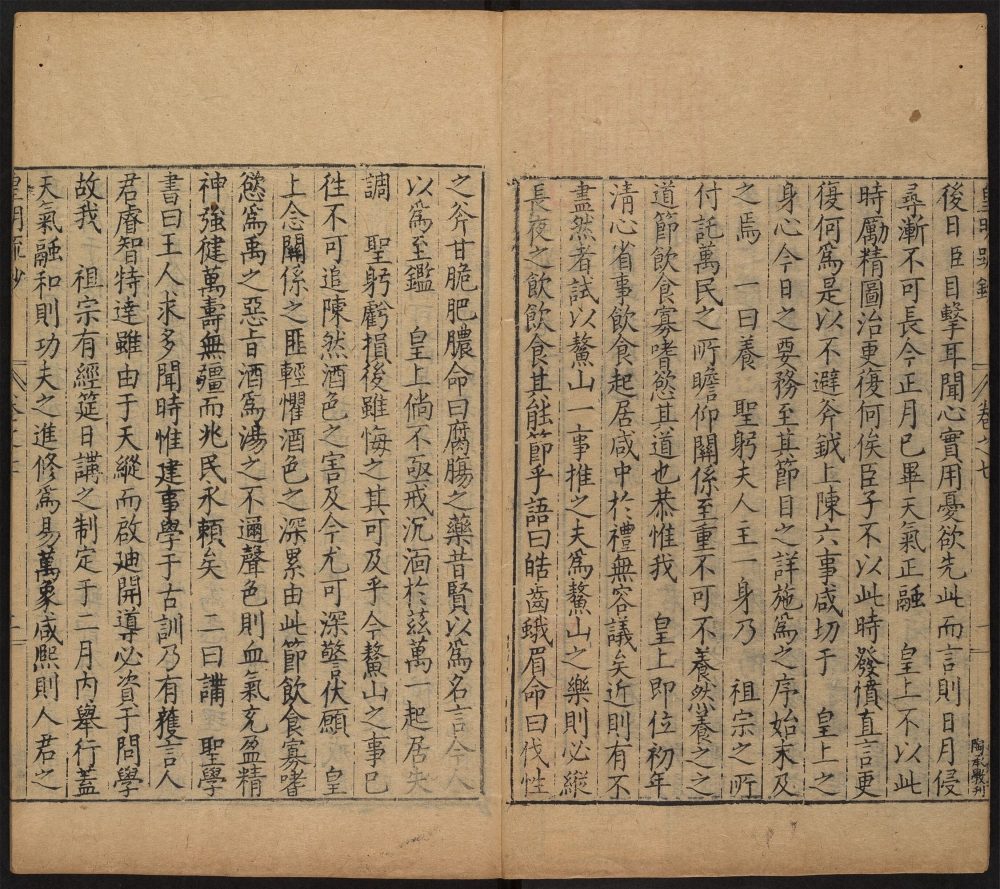 卷之七
陶承學刊
後日臣目擊耳聞心實用憂欲先此而言則日月侵
尋漸不可長今正月已畢天氣正融　皇上不以此
時厲精圖治更復何俟臣子不以此時發憤直言更
復何為是以不避斧鉞上陳六事咸切于　皇上之
身心今日之要務至其節目之詳施為之序始末及
之焉　一曰養　聖躬夫人主一身乃　祖宗之所
付託萬民之所瞻仰關係至重不可不養然養之之
道節飲食寡嗜慾其道也恭惟我　皇上即位初年
清心省事飲食起居咸中於禮無容議矣近則有不
盡然者試以鰲山一事推之夫為鰲山之樂則必縱
長夜之飲飲食其能節乎語曰皓齒蛾眉命曰伐性
之斧甘脆肥膿命曰腐腸之藥昔賢以為名言今人
以為至鑑　皇上倘不亟戒沉湎於兹萬一起居失
調　聖躬虧損後雖悔之其可及乎今鰲山之事已
徃不可追陳然酒色之害及今尤可深警伏願　皇
上念關係之匪輕懼酒色之深累由此節飲食寡嗜
慾為禹之惡旨酒為湯之不邇聲色則血氣充盈精
神強健萬壽無疆而兆民永賴矣　二曰講　聖學
書曰王人求多聞時惟建事學于古訓乃有獲言人
君睿智特達雖由于天縱而啟廸開導必資于問學
故我　祖宗有經筵日講之制定于二月內舉行蓋
天氣融和則功夫之進修為易萬象咸熙則人君之
皇明疏鈔